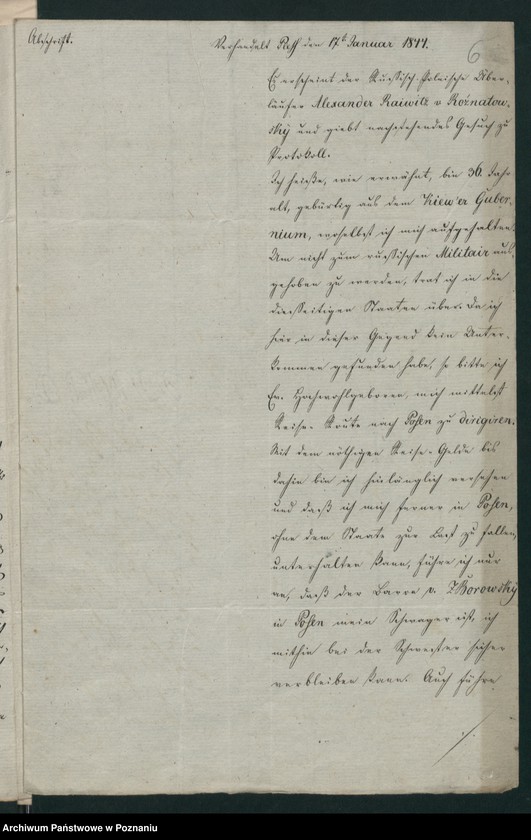 Abschrift.
Verhandelt Pless den 17t Januar 1844.
6
Es erscheint der Russisch-Polnische Über-
läufer Alexander Raiwitz v Roznatow-
sky und giebt nachstehendes Gesuch zu
Protokoll.
Ich heiße, wie erwähnt, bin 36 Jahr
alt, gebürtig aus dem Kiew'er Guber-
nium, woselbst ich mich aufgehalten.
Um nicht zum russischen Militair aus-
gehoben zu werden, trat ich in die
diesseitigen Staaten über. Da ich
hier in dieser Gegend kein Unter-
kommen gefunden habe, so bitte ich
Ew. Hochwohlgeboren, mich mittelst
Reise-Route nach Posen zu dirigiren.
Mit dem nöthigen Reise-Gelde bis
dahin bin ich hinlänglich versehen
und daß ich mich ferner in Posen,
ohne dem Staate zur Last zu fallen,
unterhalten kann, führe ich nur
an, daß der Baron v. Zborowsky
in Posen mein Schwager ist, ich
mithin bei der Schwester sicher
verbleiben kann. Auch führe
Archiwum Państwowe w Poznaniu